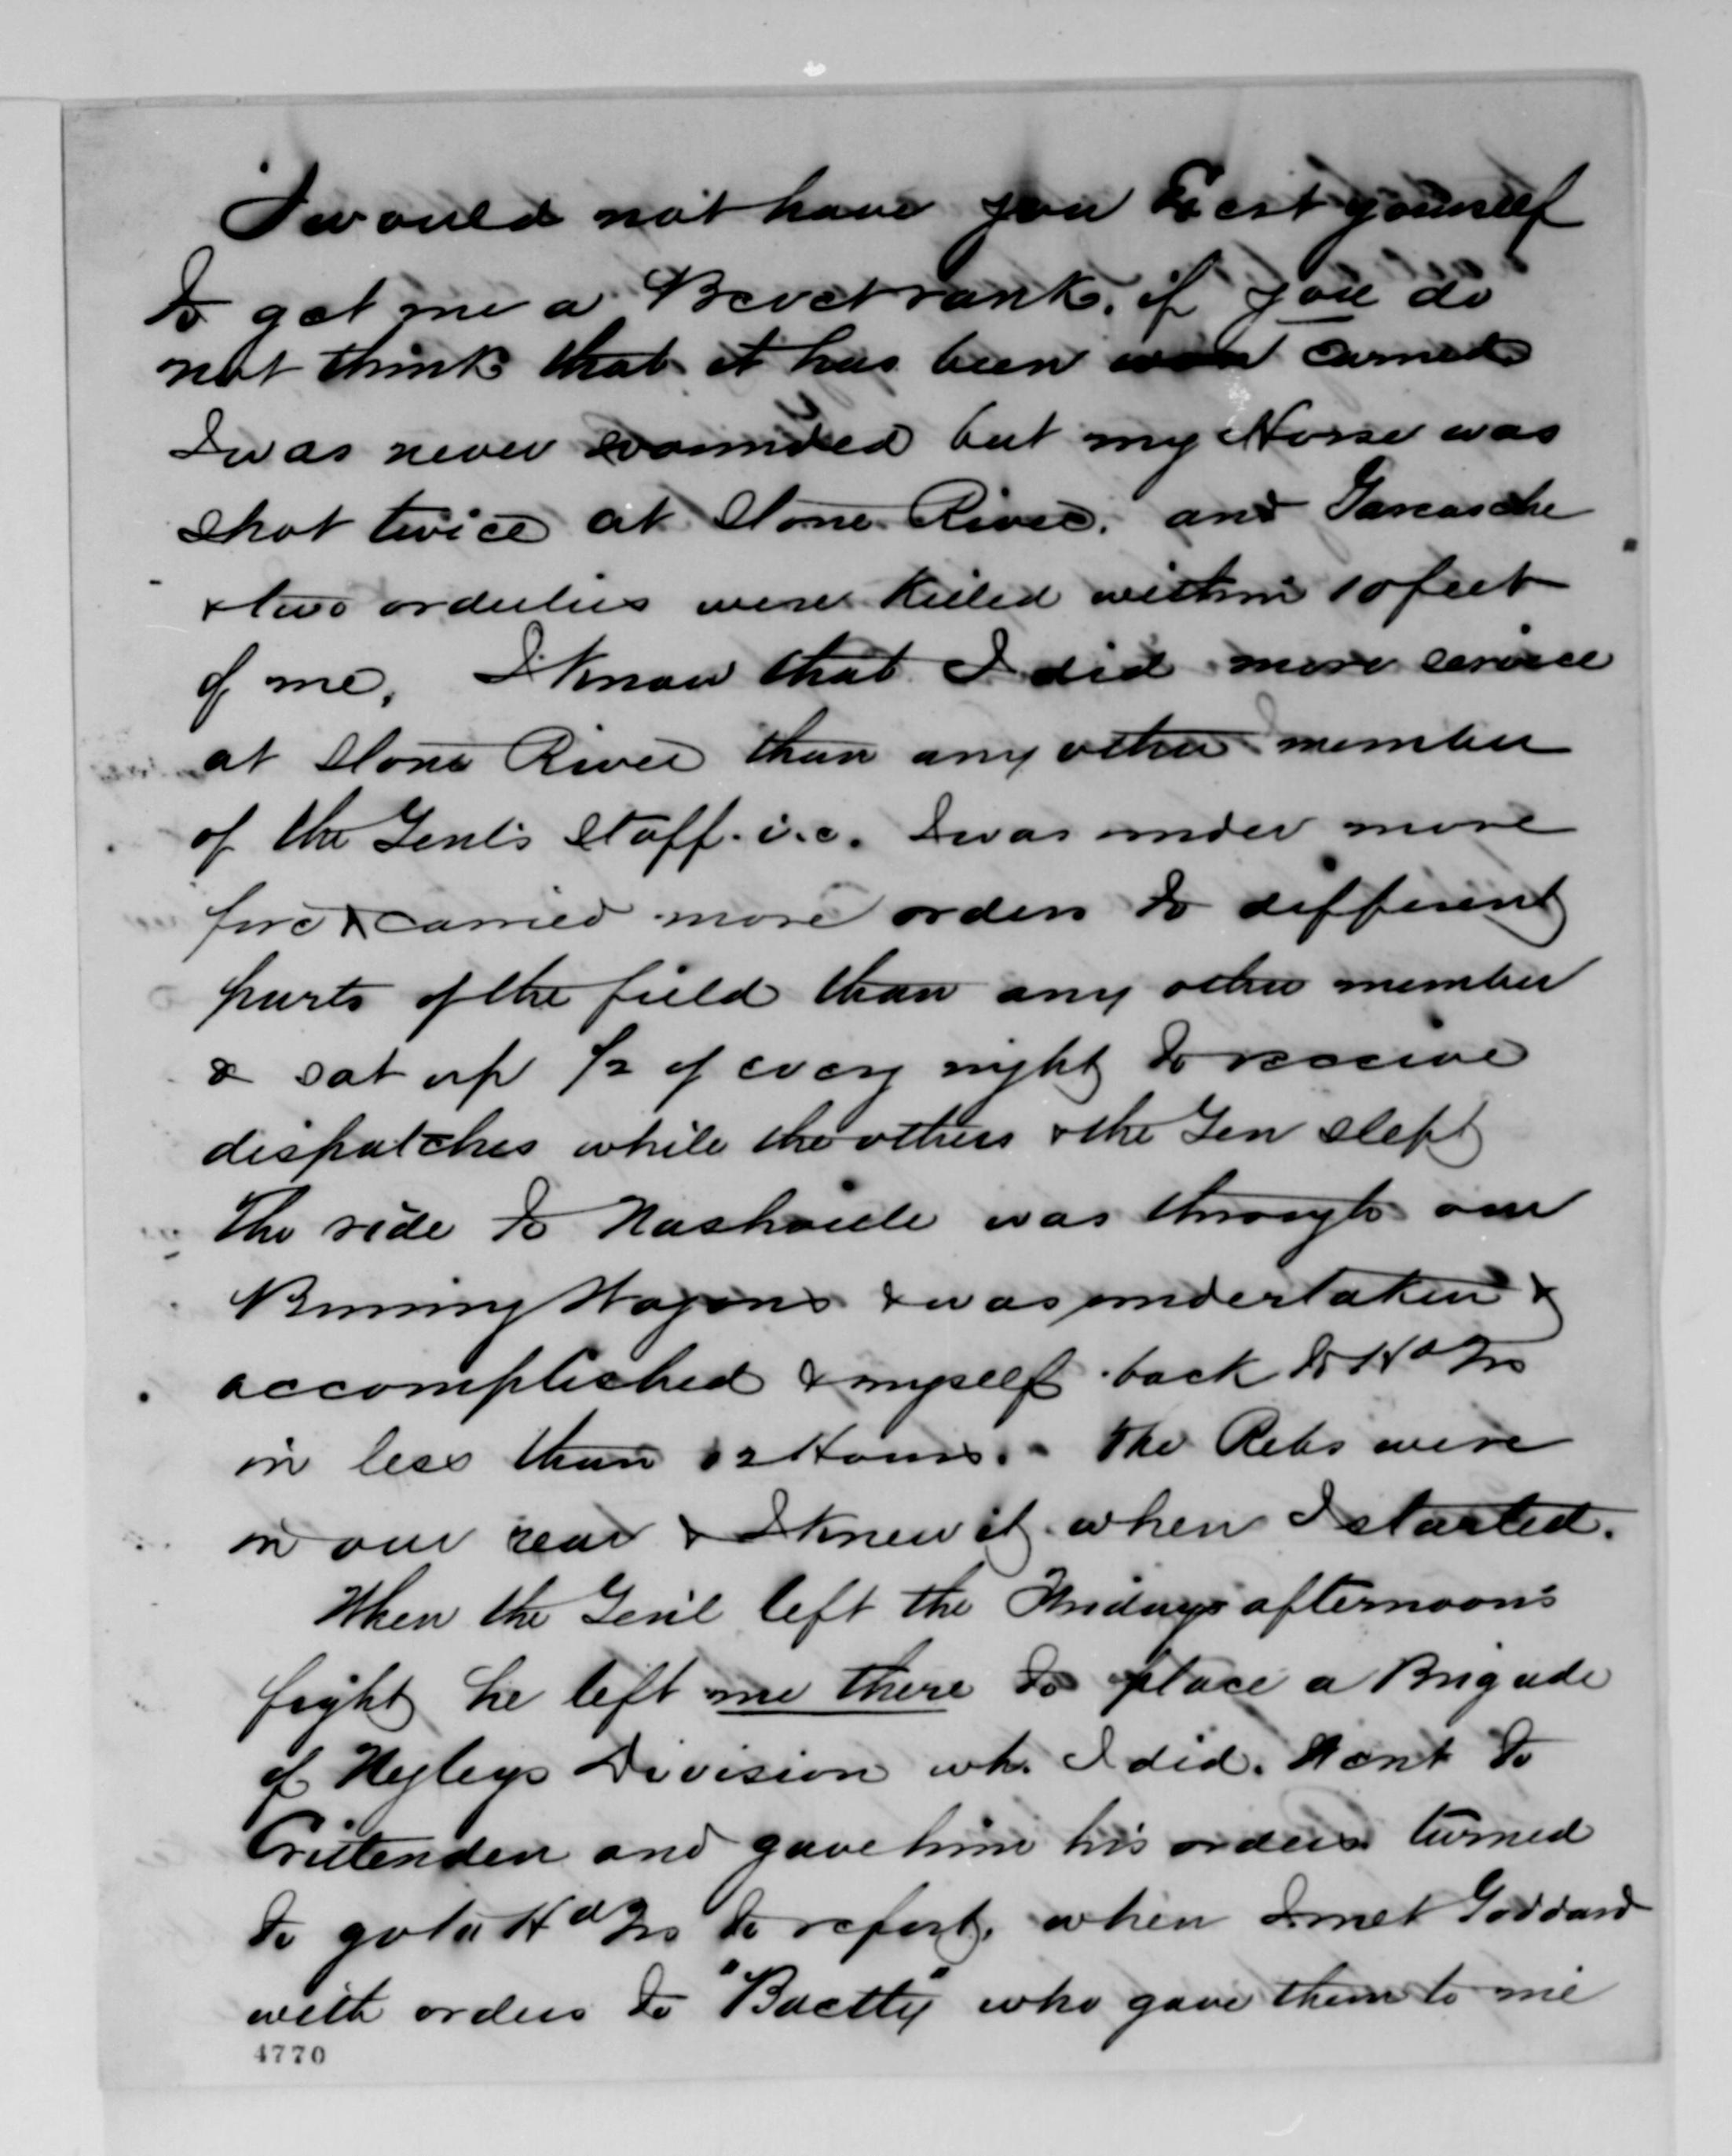 I would not have you Exert yourself
to get me a Brevet rank, if you do
not think that it has been earned
I was never wounded but my Horse was
shot twice at Stone River. and Garesche
& two orderlies were killed within 10 feet
of me. I know that I did more service
at Stone River than any other member
of the Genl's Staff. i.e. I was under more
fire & carried more orders to different
parts of the field than any other member
& sat up ½ of every night to receive
dispatches while the others & the Gen slept
The ride to Nashville was through our
Burning Wagons & was undertaken &
accomplished & myself back to Hd Qrs
in less than 12 Hours. - The Rebs were
in our rear & I knew it when I started.
When the Gen'l left the Fridays afternoon's
fight he left me there to place a Brigade
of Negleys Division wh. I did. Went to
Crittenden and gave him his orders turned
to go to Hd Qrs to report, when I met Goddard
with orders to "Baetty" who gave them to me
4770